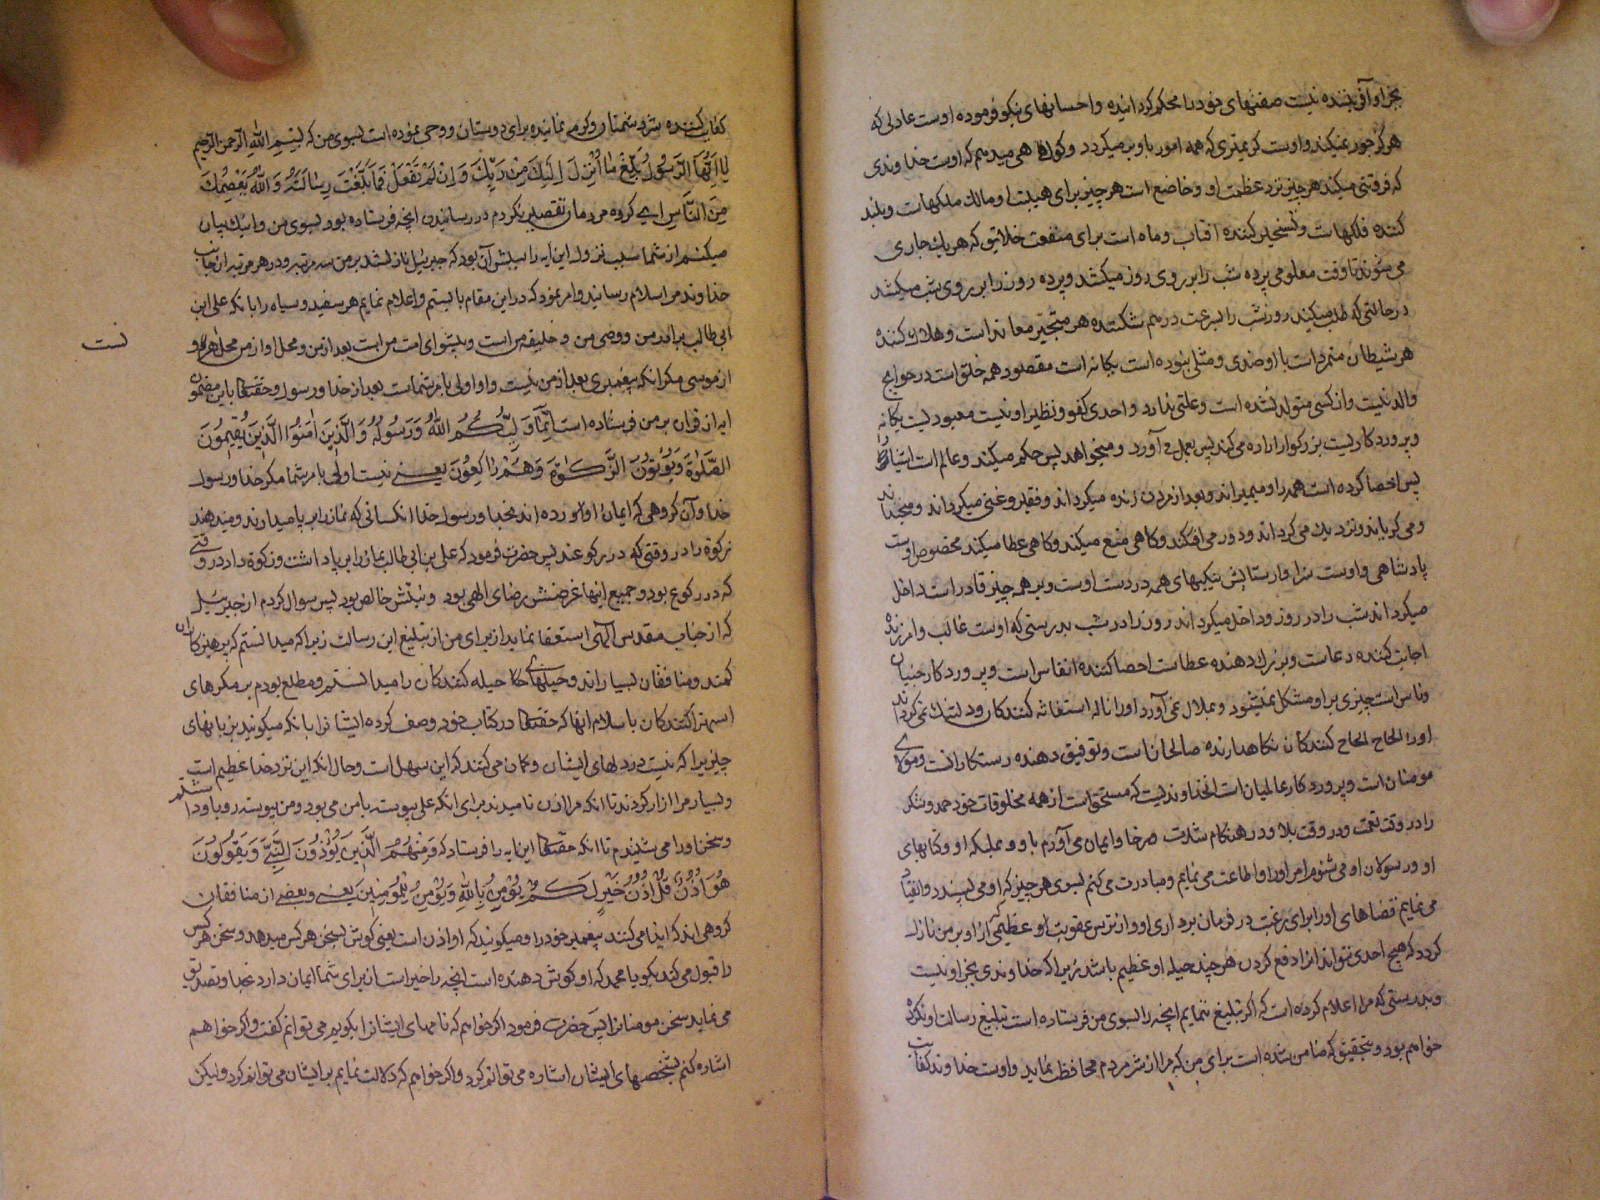 بجز او آفریننده نیست صفتهای خود را محکم گردانیده و احسانهای نیکو فرموده اوست عادلی که
هرگز جور نمیکند و اوست کریمتری که همه امور باو بر میگردد و گواهی میدهم که اوست خداوندی
که فروتنی میکند هر چیز نزد عظمت او و خاضع است هر چیز برای هیبت او مالك ملکهاست و بلند
کننده فلکهاست و تسخیر کننده آفتاب و ماه است برای منفعت خلایق که هر یك جاری
می شوند تا وقت معلومی پرده شب را بر روی روز میکشد و پرده روز را بر روی شب میکشد
در حالتی که طلب میکند روز شب را بسرعت درهم شکننده هر متجبر معاند است و هلاك کننده
هر شیطان متمرد است با او ضدی و مثلی نبوده است یگانه است مقصود همه خلق است در حوایج
والد نیست و از کسی متولد نشده است و علتی ندارد و احدی کفو و نظیر او نیست معبودیست یگانه
و پروردگاریست بزرگوار اراده می کند پس بعمل می آورد و میخواهد پس حکم میکند و عالم است اشیا را
پس احصا کرده است همه را و میمیراند و بعد از مردن زنده میگرداند و فقیر و غنی میگرداند و میخنداند
و می گریاند و نزدیك می گرداند و دور می افکند و گاهی منع میکند و گاهی عطا میکند مخصوص اوست
پادشاهی و اوست سزاوار ستایش نیکیهای همه در دست اوست و بر همه چیز قادر است داخل
میگرداند شب را در روز و داخل میگرداند روز را در شب بدرستی که اوست غالب و آمرزنده
اجابت کننده دعاست و بزرك دهنده عطاست احصا کننده انفاس است و پروردگار جنیان
و ناس است چیزی بر او مشکل نمیشود و بملال نمی آورد او را ناله استغاثه کنندگان و دلتنك نمی گرداند
او را الحاح الحاح کنندگان نگاهدارنده صالحان است و توفیق دهنده رستگارانست و مولای
مومنان است و پروردگار عالمیان است آن خداوندیست که مستحق است از همه مخلوقات خود حمد و شکر
را در وقت نعمت و در وقت بلا و در هنگام شدت و رخا و ایمان می آورم باو و بملیکه او و کتابهای
او و رسولان او می شنوم امر او را و اطاعت می نمایم و مبادرت می کنم بسوی هر چیز که او می پسندد و انقیاد
می نمایم قضاهای او را برای رغبت در فرمان برداری او و از ترس عقوبت او عظیمی که آنرا او بر من نازل
گردد که هیچ احدی نتواند آنرا دفع کردن هر چند حیله او عظیم باشد زیرا که خداوندی بجز او نیست
و بدرستی که مرا اعلام کرده است که اگر تبلیغ ننمایم آنچه را بسوی من فرستاده است تبلیغ رسالت او نکرده
خواهم بود و بتحقیق که ضامن شده است برای من که مرا از شر مردم محافظت نماید و اوست خداوند کفایت
کفایت کننده شر دشمنان و کرم نماینده برای دوستان و وحی نموده است بسوی من که بسم الله الرحمن الرحیم
یا ایها الرسول بلغ ما انزل الیك من ربك و ان لم تفعل فما بلغت رسالته و الله یعصمك
من الناس ای گروه مردمان تقصیر نکردم در رسانیدن آنچه فرستاده بود بسوی من و اینك بیان
میکنم از شما سبب نزول این آیه را سببش آن بود که جبرئیل نازل شد بر من سه مرتبه و در هر مرتبه از جانب
خداوند من اسلام رسانید و امر نمود که در این مقام بایستم و اعلام نمایم هر سفید و سیاه را بانکه علی ابن
ابی طالب برادر من و وصی من و خلیفه من است و پیشوای امت من است بعد از من و محل او از من محل هرون
از موسی مگر آنکه پیغمبری بعد از من نیست و او اولی بامر شماست بعد از خدا و رسول و حقتعالی باین مضمون
آیه از قران بر من فرستاده است انما ولیکم الله و رسوله و الذین امنوا الذین یقیمون
الصلوة و یؤتون الزکوة و هم راکعون یعنی نیست اولی بامر شما مگر خدا و رسول
خدا و آن گروهی که ایمان آورده اند بخدا و رسول خدا آنکسانی که نماز را برپا میدارند و میدهند
زکوة را در وقتی که در رکوعند پس حضرت فرمود که علی بن ابی طالب نماز را برپا داشت و زکوة داد در وقتی
که در رکوع بود و جمیع اینها غرضش رضای الهی بود و نیتش خالص بود پس سوال کردم از جبرئیل
که از جناب مقدس الهی استعفا نماید از برای من از تبلیغ این رسالت زیرا که میدانستم که پرهیزکاران
کمند و منافقان بسیاراند و حیلهای حیله کنندگان را میدانستم و مطلع بودم بر مکرهای
استهزا کنندگان باسلام آنها که حقتعالی در کتاب خود وصف کرده ایشانرا بانکه میگویند بزبانهای
چیزیرا که نیست در دلهای ایشان و گمان می کنند که این سهل است و حال آنکه این نزد خدا عظیم است
و بسیار مرا ازار کردند تا آنکه مرا اذن نامیدند برای آنکه علی پیوسته با من می بود و من پیوسته رو باو داشتم
و سخن او را می شنیدم تا آنکه حقتعالی این آیه را فرستاد که و منهم الذین یؤذون النبی و یقولون
هو اذن قل اذن خیر لکم یؤمن بالله و یؤمن للمؤمنین یعنی و بعضی از منافقان
گروهی اند که ایذا می کنند پیغمبر خود را و میگویند که او اذن است یعنی گوش بسخن هر کس میدهد و سخن هر کس
را قبول می کند بگو یا محمد که او گوش دهنده است آنچه را خیر است از برای شما ایمان دارد بخدا و تصدیق
می نماید سخن مومنانرا پس حضرت فرمود اگر خواهم که نامهای ایشانرا بگویم می توانم گفت و اگر خواهم
اشاره کنم بشخصهای ایشان اشاره می توانم کرد و اگر خواهم که دلالت نمایم بر ایشان می توانم کرد و لیکن